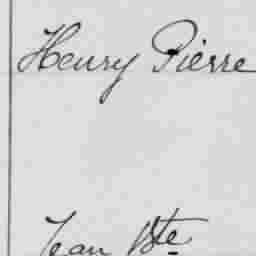 Henry Pierre
Jean Bte